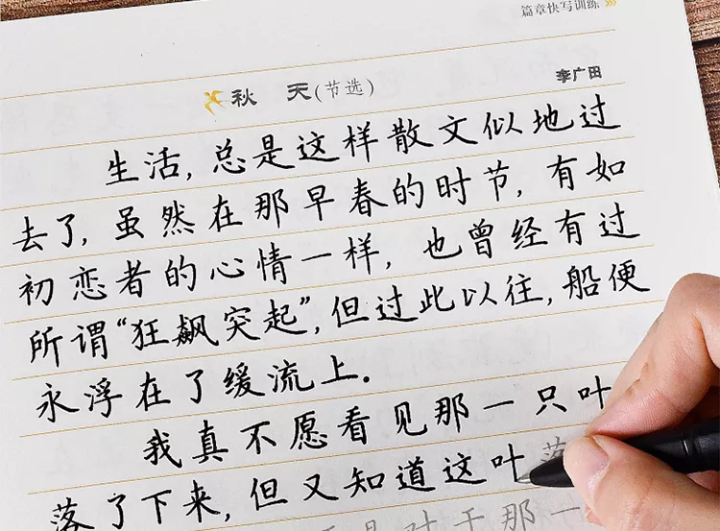 篇章快写训练
秋 天(节选)
李广田
生活,总是这样散文似地过
去了,虽然在那早春的时节,有如
初恋者的心情一样,也曾经有过
所谓“狂飙突起”,但过此以往,船便
永浮在了缓流上.
我真不愿看见那一只叶
落了下来,但又知道这叶落
是对于那一